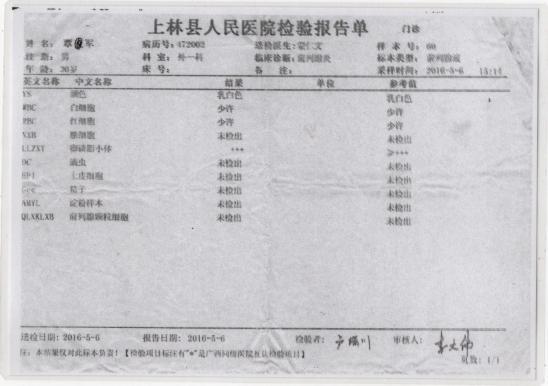 上林县人民医院检验报告单 门诊
姓 名: 覃 军 病历号: 472002 送检医生: 蒙仁文 样 本 号: 60
性 别: 男 科 室: 外一科 临床诊断: 前列腺炎 标本类型: 前列腺液
年 龄: 30岁 床 号: 备 注: 采样时间: 2016-5-6 15:14
英文名称 中文名称 结果 单位 参考值
YS 颜色 乳白色 乳白色
WBC 白细胞 少许 少许
RBC 红细胞 少许 少许
NXB 脓细胞 未检出 未检出
LLZXT 卵磷脂小体 +++ >+++
DC 滴虫 未检出 未检出
SPJ 上皮细胞 未检出 未检出
精子 未检出 未检出
AMYL 淀粉样本 未检出 未检出
QLXKLXB 前列腺颗粒细胞 未检出 未检出
送检日期: 2016-5-6 报告日期: 2016-5-6 检验者: 审核人:
注: 本结果仅对此标本负责!【检验项目标注有"*"是广西同级医院互认检验项目】
页数: 1/1